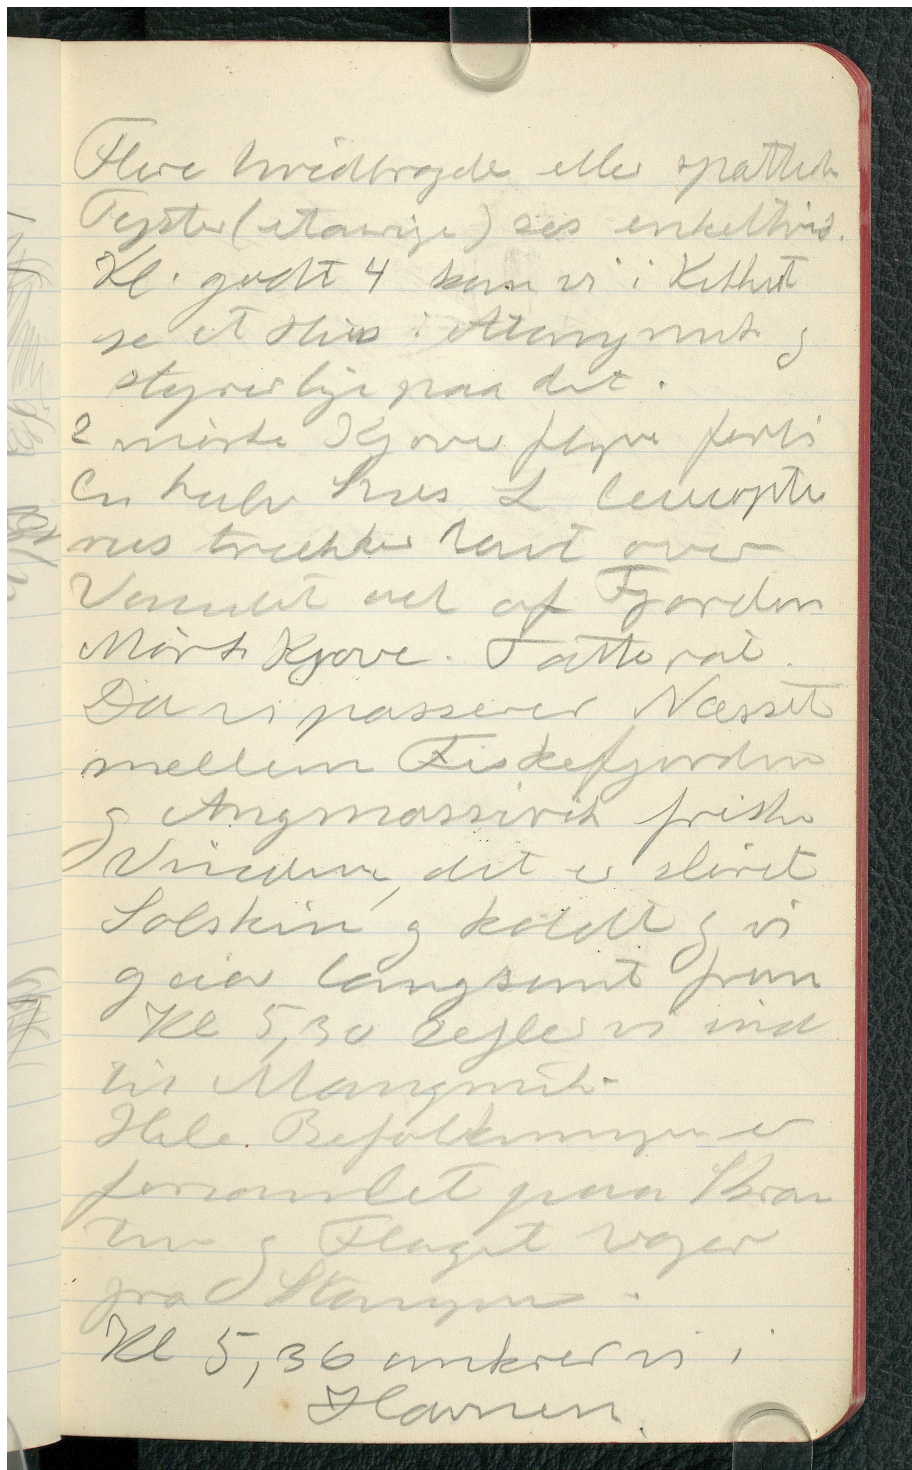 Flere hvidbrogde eller spættede
Tejster (etaarige) ses enkeltvis.
Kl. godt 4 kan vi i Kikkert
se et Hus i Atangmik og
styrer lige paa det.
2 mørke Kjover flyve forbi
En halv Snes L leucopte
rus trækker lavt over
Vandet ud af Fjorden
Mørk Kjove. Tatterat.
Da vi passerer Næsset
mellem Fiskefjorden
og Angmassivik friske
Vinden, det er sløret
Solskin og koldt og vi
gaar langsomt frem
Kl 5,30 sejler vi ind
til Atangmik.
Hele Befolkningen er
forsamlet paa Bran
og Flaget vajer
fra Stangen.
Kl 5,36 ankrer vi i
Havnen.